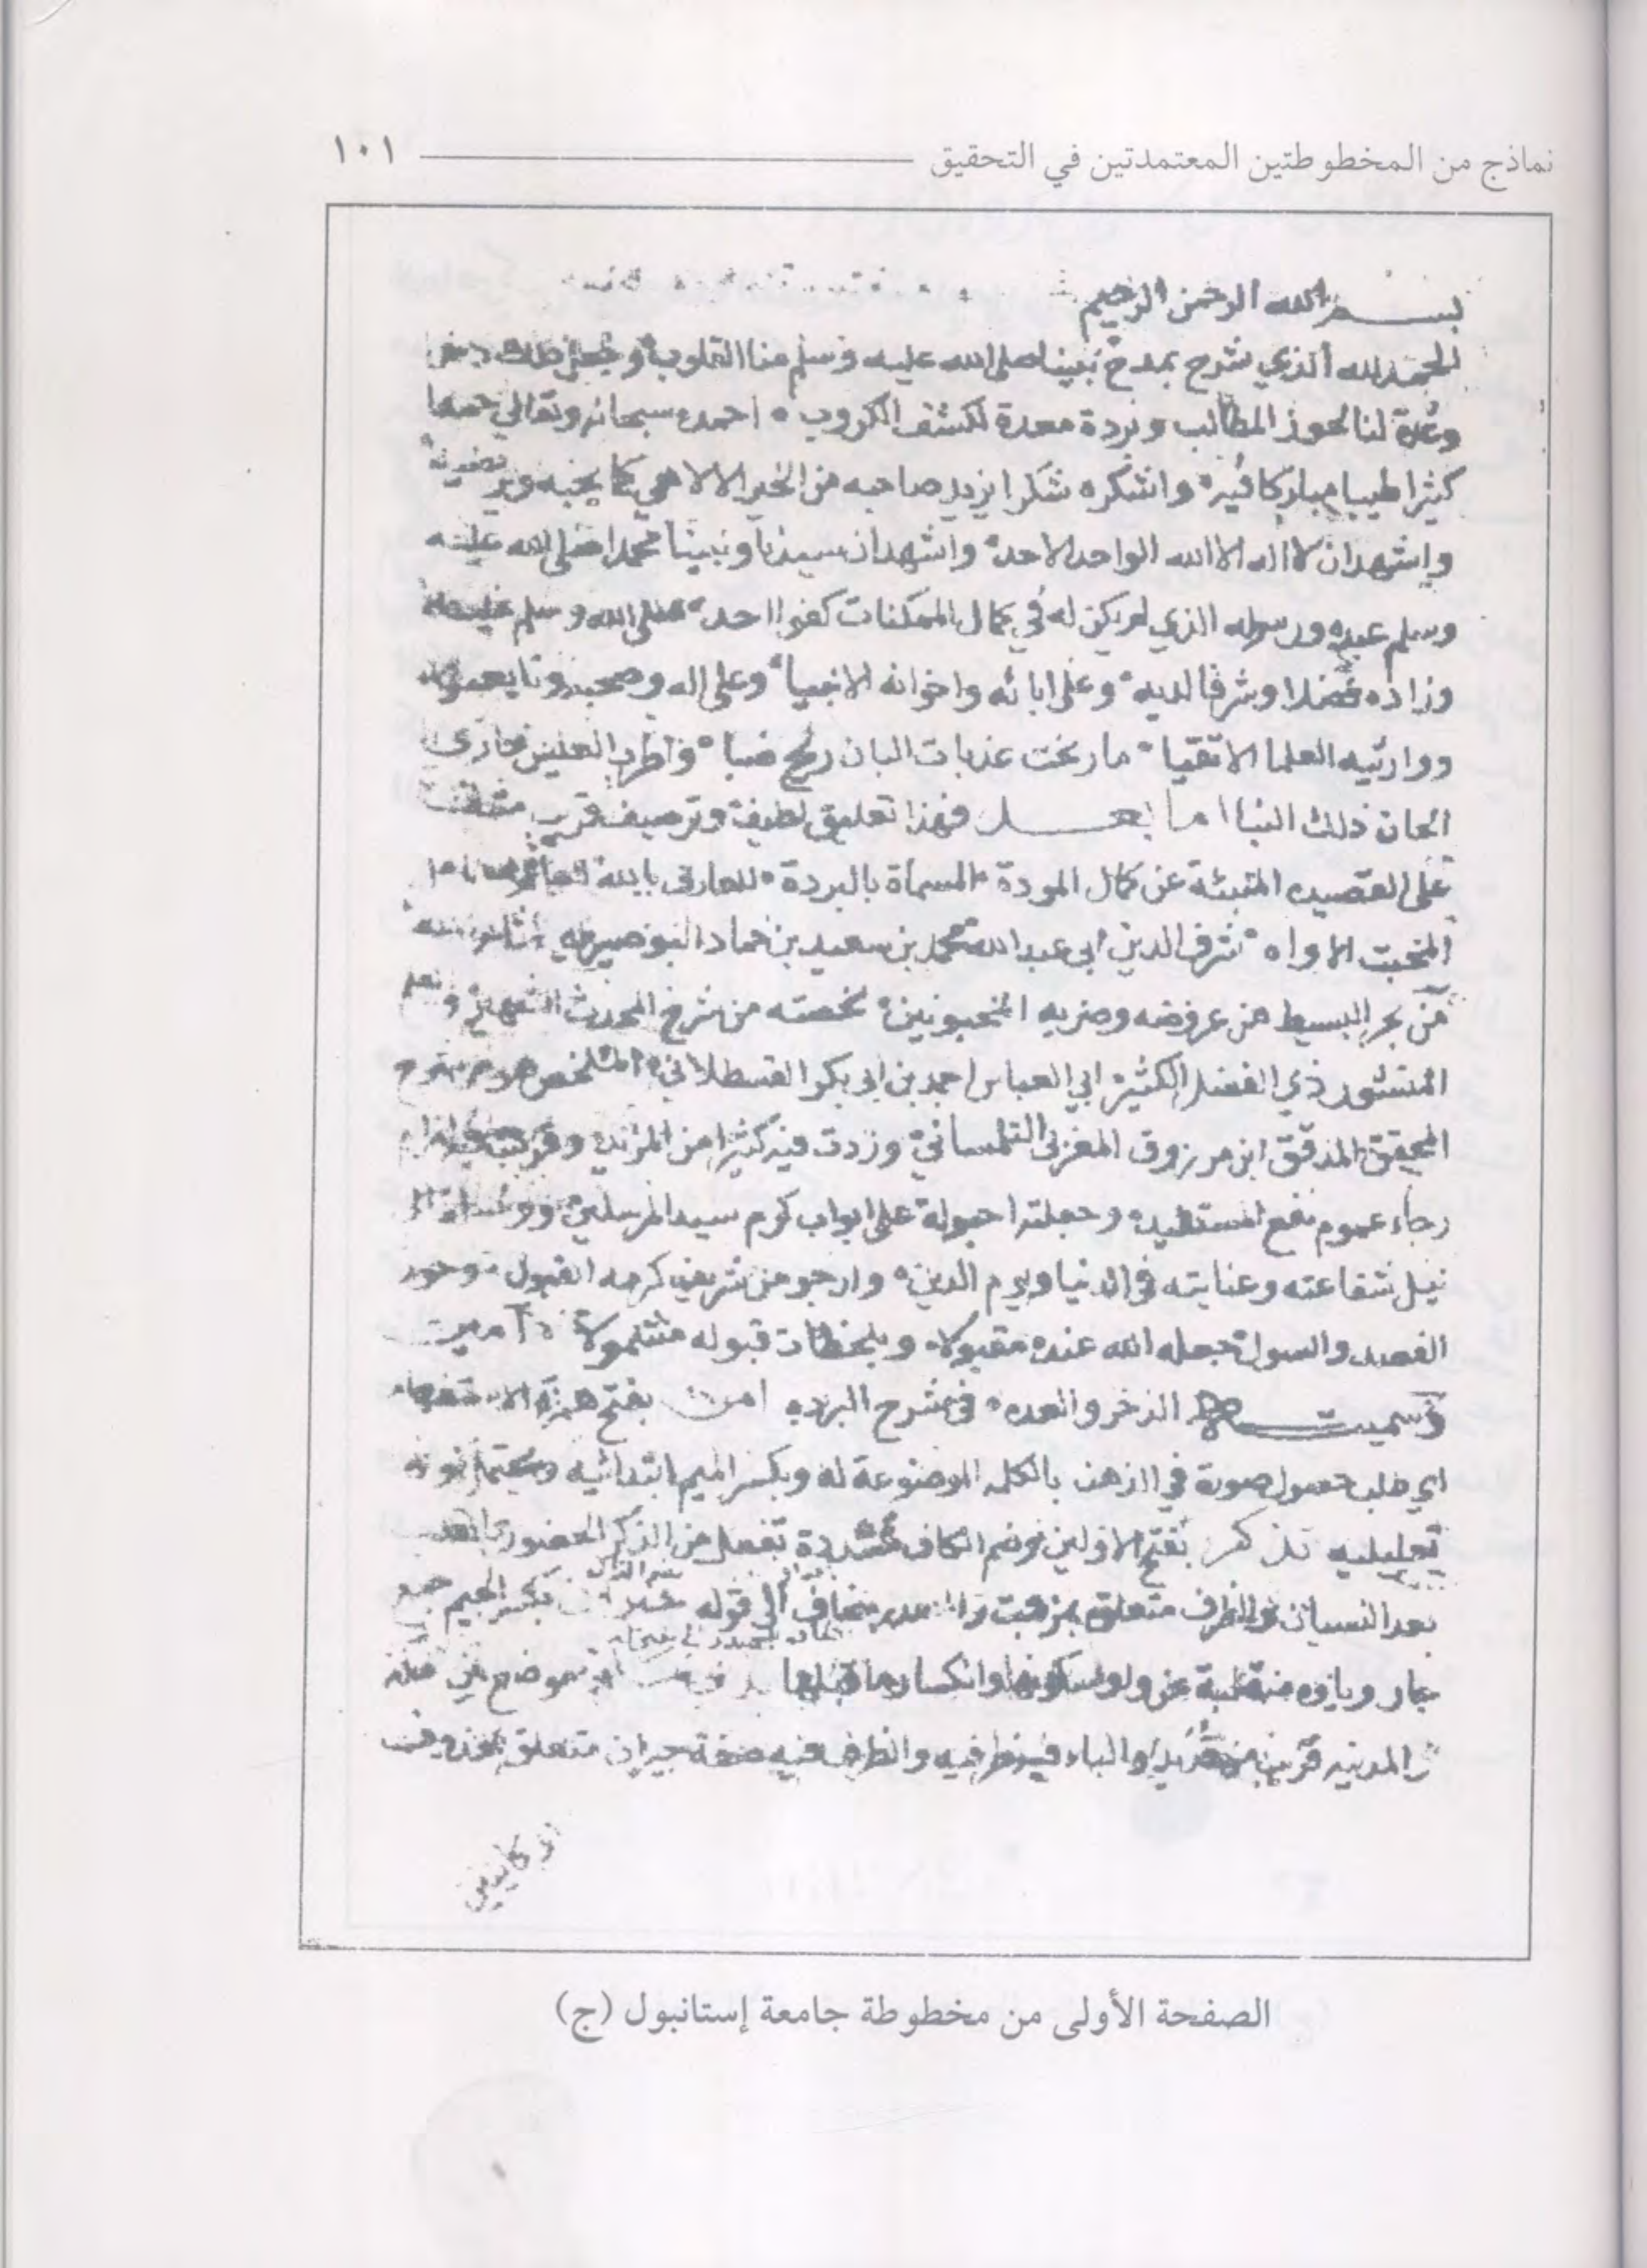 نماذج من المخطوطتين المعتمدتين في التحقيق ١٠١
بسم الله الرحمن الرحيم
الحمد لله الذي شرح بمدح نبينا صلى الله عليه وسلم منا القلوب وجعل ذلك
وعدة لنا لحوز المطالب وبردة معدة لكشف الكروب احمده سبحانه وتعالى حمدا
كثيرا طيبا مباركا فيه واشكره شكرا يزيد صاحبه من الخير الالاهي كما يحبه ويرضيه
واشهد ان لا اله الا الله الواحد الاحد واشهد ان سيدنا ونبينا محمدا صلى الله عليه
وسلم عبده ورسوله الذي لم يكن له في كمال الممكنات كفوا احد صلى الله وسلم عليه
وزاده فضلا وشرفا لديه وعلى ابائه واخوانه الانبيا وعلى اله وصحبه وتابعيهم
ووارثيه العلما الاتقيا ما رنحت عذبات البان ريح صبا واطرب العيس حادي
الحان ذلك النبا اما بعد فهذا تعليق لطيف وترصيف قريب
على القصيده المنبئة عن كمال المودة المسماة بالبردة للعارف بالله
المخبت الاواه شرف الدين ابي عبد الله محمد بن سعيد بن حماد البوصيري
من بحر البسيط من عروضه وضربه المخبونين لخصته من شرح المحدث الشهير
المنثور ذي الفضل الكثير ابي العباس احمد بن ابي بكر القسطلاني الملخص هو من شرح
المحقق المدقق ابن مرزوق المغربي التلمساني وزدت فيه كثيرا من المزايد
رجاء عموم نفع المستفيد وجعلته احبولة على ابواب كرم سيد المرسلين
نيل شفاعته وعنايته في الدنيا ويوم الدين وارجو من شريف كرمه القبول وحوز
القصد والسول جعله الله عنده مقبولا وبلحظات قبوله مشمولا آمين
وسميته الذخر والعده في شرح البرده امن بفتح همزة الاستفهام
اي طلب حصول صورة في الذهن بالكلمه الموضوعة له وبكسر الميم ابتدائيه ويحتمل كونه
تعليليه تذكر بفتح الاولين وضم الكاف مشددة تفعل من الذكر الحضور
بعد النسيان والظرف متعلق بمزجت والمصدر مضاف الى قوله جيران بكسر الجيم جمع
جار وياؤه منقلبة عن واو لسكونها وانكسار ما قبلها موضع بين
المدينه قريب من قديد والباء فيه ظرفيه والظرف فيه صفة جيران متعلق بمحذوف
الصفحة الأولى من مخطوطة جامعة إستانبول (ج)